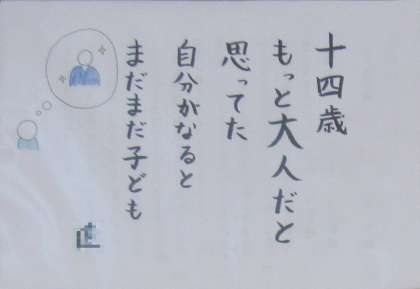 十四歳
もっと大人だと
思ってた
自分がなると
まだまだ子ども